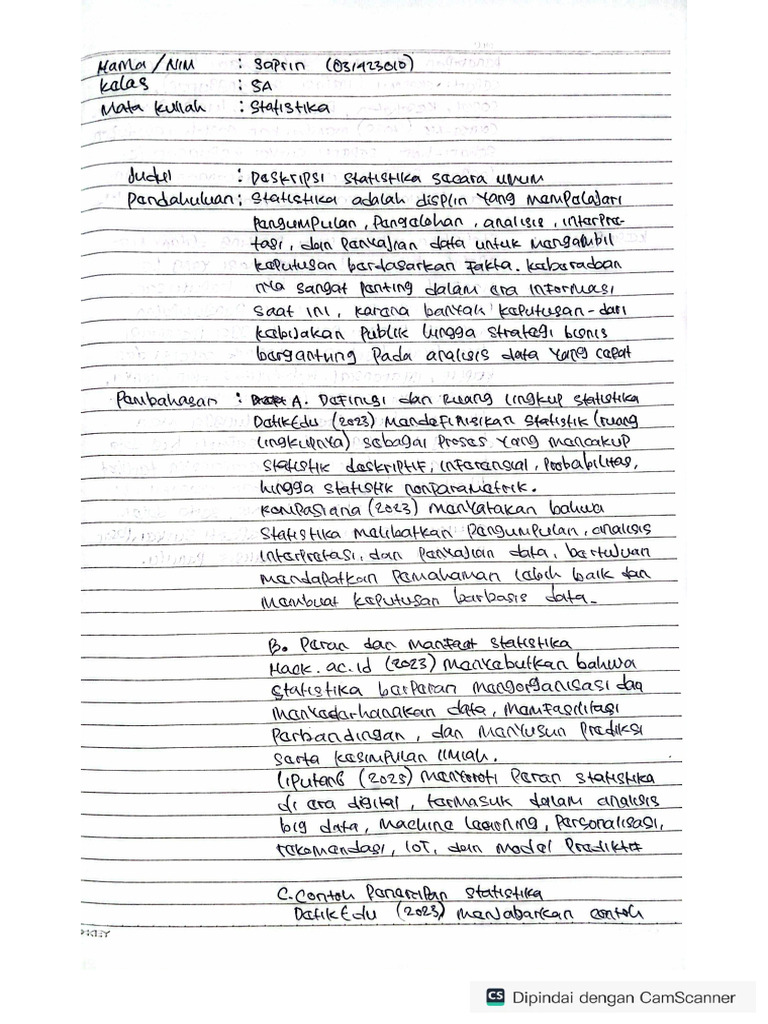 Nama/NIM : Saprin (031923010)
Kelas : 5A
Mata Kuliah : Statistika
Judul : Deskripsi Statistika secara umum
Pendahuluan : Statistika adalah displin yang mempelajari
pengumpulan, pengolahan, analisis, interpre-
tasi, dan penyajian data untuk mengambil
keputusan berdasarkan fakta. keberadaan
nya sangat penting dalam era informasi
saat ini, karena banyak keputusan - dari
kebijakan publik hingga strategi bisnis
bergantung pada analisis data yang cepat
Pembahasan : A. Definisi dan Ruang lingkup statistika
DatikEdu (2023) Mendefinisikan statistik (ruang
lingkupnya) sebagai proses yang mencakup
statistik deskriptif, inferensial, probabilitas,
hingga statistik nonparametrik.
Kompasiana (2023) menyatakan bahwa
statistika melibatkan pengumpulan, analisis
interpretasi, dan penyajian data, bertujuan
mendapatkan pemahaman lebih baik dan
membuat keputusan berbasis data.
B. Peran dan manfaat statistika
Hack.ac.id (2023) menyebutkan bahwa
statistika berperan mengorganisasi dan
menyederhanakan data, memfasilitasi
perbandingan, dan menyusun prediksi
serta kesimpulan ilmiah.
Liputan6 (2023) menyoroti peran statistika
di era digital, termasuk dalam analisis
big data, machine learning, personalisasi,
rekomendasi, IoT, dan model prediktif
C. Contoh penerapan statistika
DatikEdu (2023) menjabarkan contoh
CS Dipindai dengan CamScanner